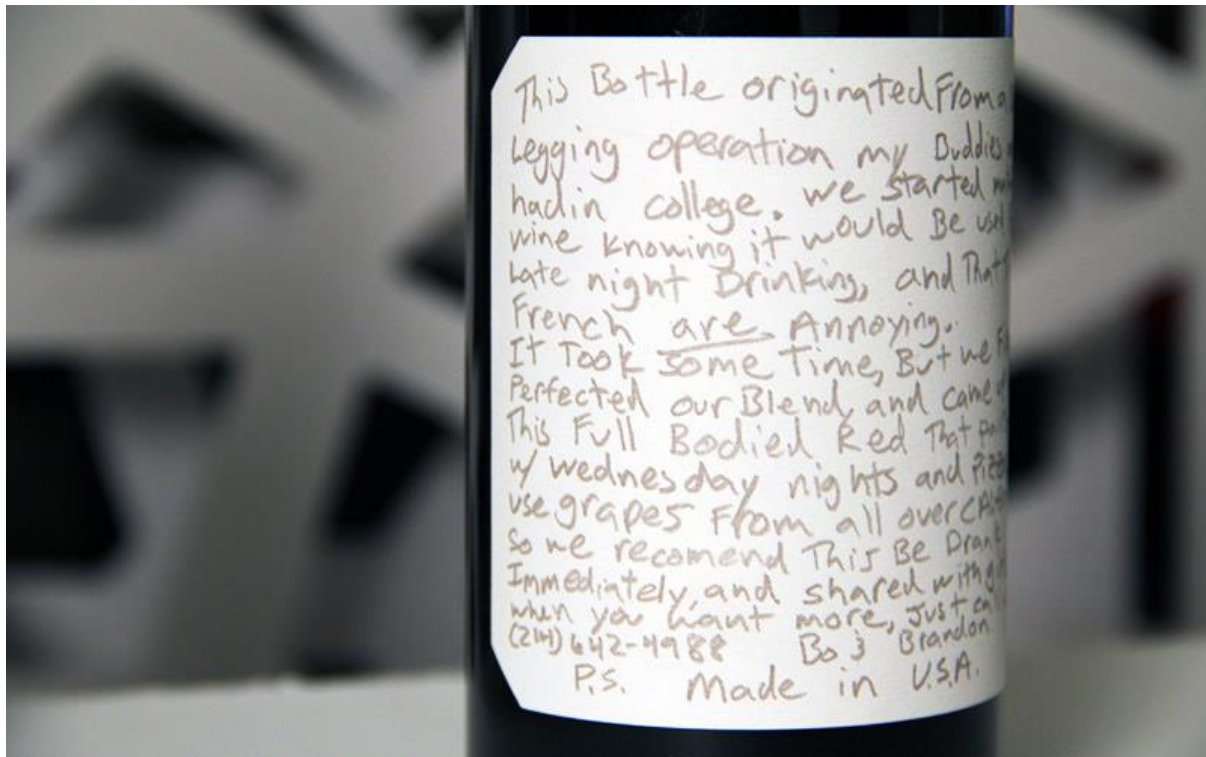 This Bottle originated From a
Legging operation my Buddies
had in college. we started
wine knowing it would Be used
Late night Drinking, and That
French are Annoying.
It Took some Time, But we
Perfected our Blend, and came
This Full Bodied Red That
w/ wednesday nights and
use grapes From all over
So we recomend This Be Drank
Immediately, and shared with
when you want more, just
(214) 642-4988 Bo & Brandon
P.S. Made in U.S.A.